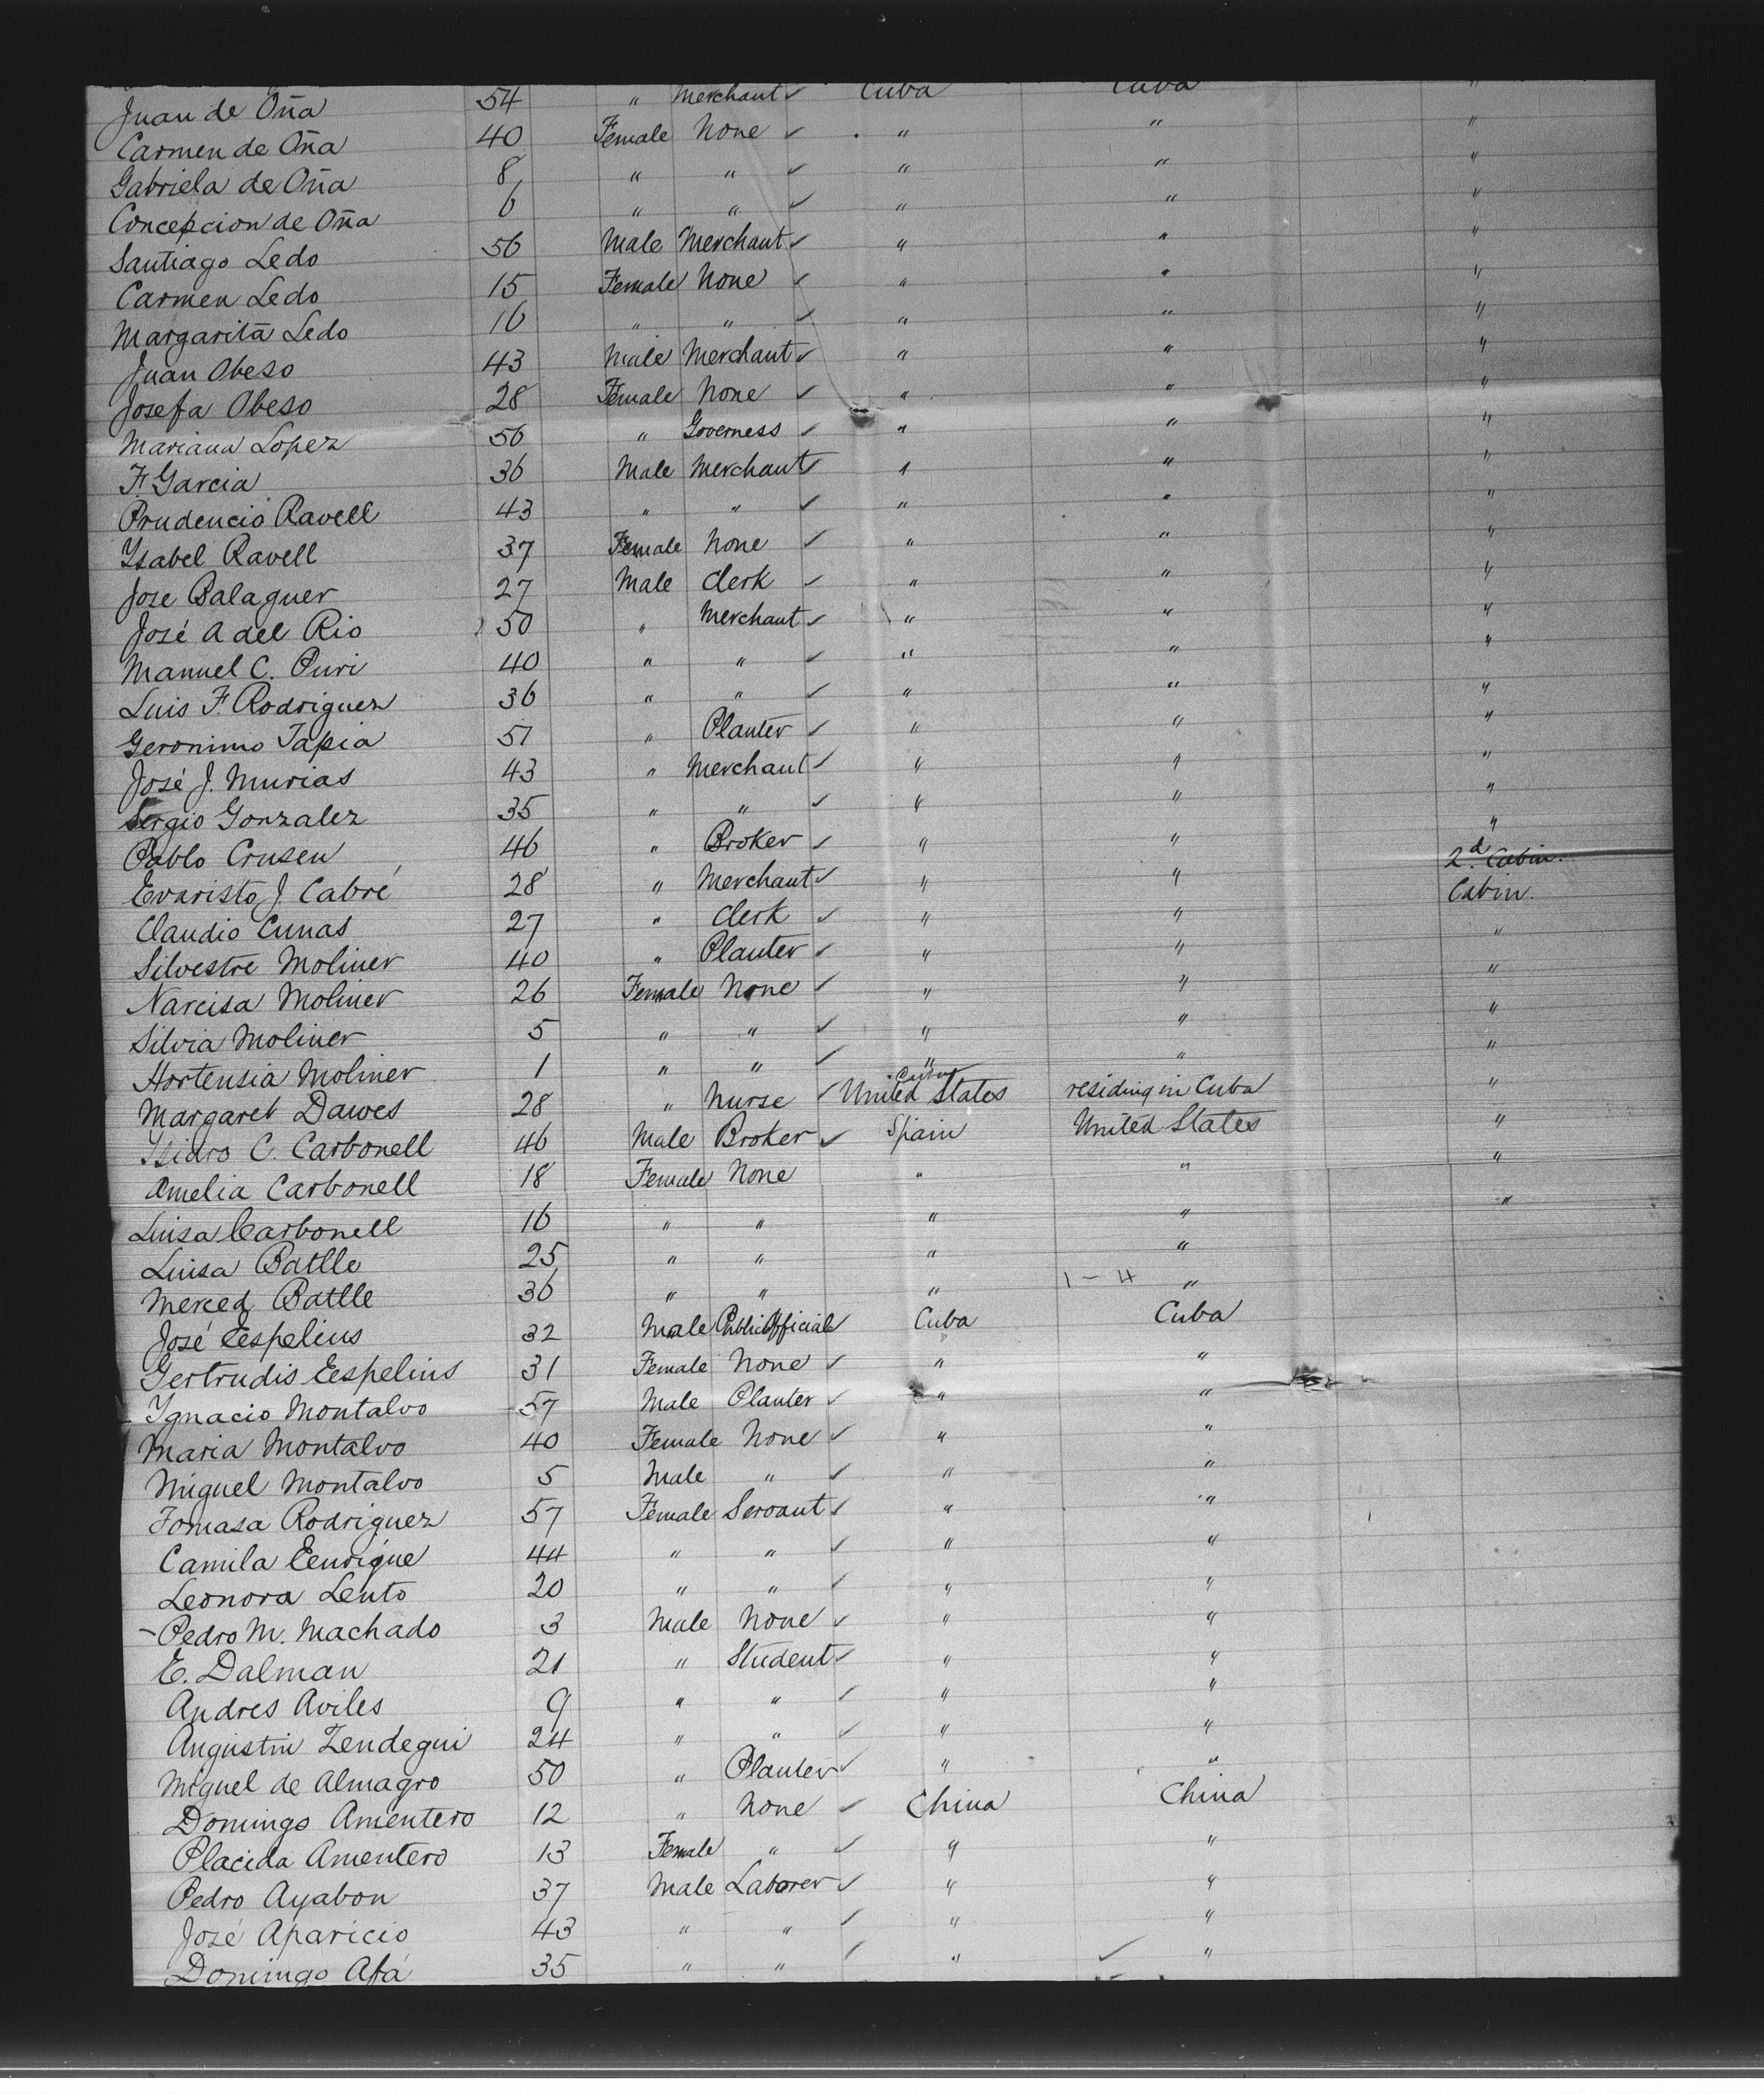 Juan de Oña 54 " Merchant ✓ Cuba Cuba "
Carmen de Oña 40 Female None ✓ " " "
Gabriela de Oña 8 " " ✓ " " "
Concepcion de Oña 6 " " ✓ " " "
Santiago Ledo 56 Male Merchant ✓ " " "
Carmen Ledo 15 Female None ✓ " " "
Margarita Ledo 16 " " ✓ " " "
Juan Obeso 43 Male Merchant ✓ " " "
Josefa Obeso 28 Female None ✓ " " "
Mariana Lopez 56 " Governess ✓ " " "
F. Garcia 36 Male Merchant ✓ " " "
Prudencio Ravell 43 " " ✓ " " "
Ysabel Ravell 37 Female None ✓ " " "
Jose Balaguer 27 Male Clerk ✓ " " "
José A del Rio 50 " Merchant ✓ " " "
Manuel C. Puri 40 " " ✓ " " "
Luis F. Rodriguez 36 " " ✓ " " "
Geronimo Tapia 51 " Planter ✓ " " "
José J. Murias 43 " Merchant ✓ " " "
Sergio Gonzalez 35 " " ✓ " " "
Pablo Crusen 46 " Broker ✓ " " "
Evaristo J. Cabré 28 " Merchant ✓ " " 2.d Cabin.
Claudio Cunas 27 " Clerk ✓ " " Cabin.
Silvestre Moliner 40 " Planter ✓ " " "
Narcisa Moliner 26 Female None ✓ " " "
Silvia Moliner 5 " " ✓ " " "
Hortensia Moliner 1 " " ✓ " " "
Margaret Dawes 28 " Nurse ✓ United States residing in Cuba "
Ysidro C. Carbonell 46 Male Broker ✓ Spain United States "
Amelia Carbonell 18 Female None " " "
Luisa Carbonell 16 " " " " "
Luisa Batlle 25 " " " "
Merced Batlle 36 " " " 1 - 4 "
José Eespelius 32 Male Public Official ✓ Cuba Cuba
Gertrudis Eespelius 31 Female None ✓ " "
Ygnacio Montalvo 57 Male Planter ✓ " "
Maria Montalvo 40 Female None ✓ " "
Miguel Montalvo 5 Male " ✓ " "
Tomasa Rodriguez 57 Female Servant ✓ " "
Camila Eenrique 44 " " ✓ " "
Leonora Lento 20 " " ✓ " "
Pedro M. Machado 3 Male None ✓ " "
E. Dalman 21 " Student ✓ " "
Andres Aviles 9 " " ✓ " "
Augustin Zendegui 24 " " ✓ " "
Miguel de Almagro 50 " Planter ✓ " "
Domingo Amentero 12 " None ✓ China China
Placida Amentero 13 Female " ✓ " "
Pedro Ayabon 37 Male Laborer ✓ " "
José Aparicio 43 " " ✓ " "
Domingo Afá 35 " " ✓ " ✓ "